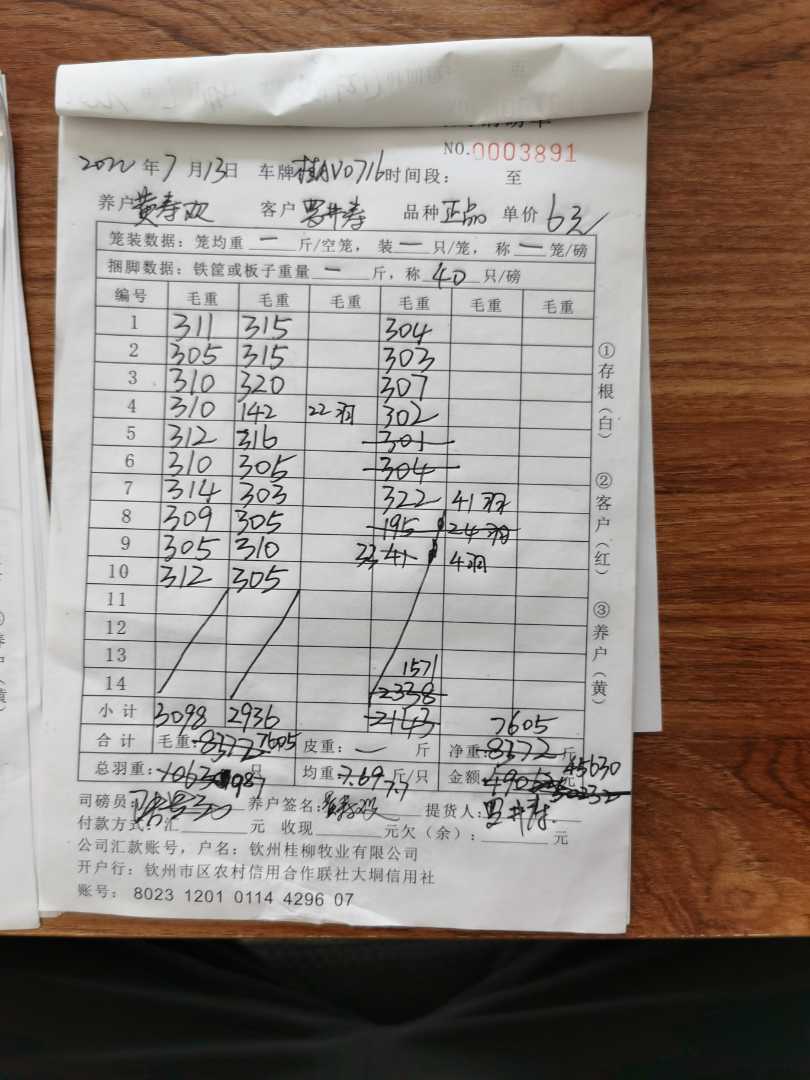 NO.0003891
2022年7月13日 车牌桂AV0716时间段： 至
养户黄寿欢 客户罗井寿 品种正品 单价6元
笼装数据：笼均重一斤/空笼，装一只/笼，称一笼/磅
捆脚数据：铁筐或板子重量一斤，称40只/磅
编号 毛重 毛重 毛重 毛重 毛重 毛重
1 311 315 304
2 305 315 303
3 310 320 307
4 310 142 22羽 302
5 312 316 301
6 310 305 304
7 314 303 322 41羽
8 309 305 195 24羽
9 305 310 33 41 4羽
10 312 305
11
12
13 1571
14 2338
小计 3098 2936 2143 7605
合计 毛重：8372 7605 皮重：一 斤 净重：8372 斤
总羽重：1063 987 只 均重：7.69 7.7 斤/只 金额 45630 50232 元
司磅员： 养户签名：黄寿欢 提货人：罗井寿
付款方式：汇 元 收现 元欠（余）： 元
公司汇款账号，户名：钦州桂柳牧业有限公司
开户行：钦州市区农村信用合作联社大垌信用社
账号：8023 1201 0114 4296 07
①存根（白） ②客户（红） ③养户（黄）